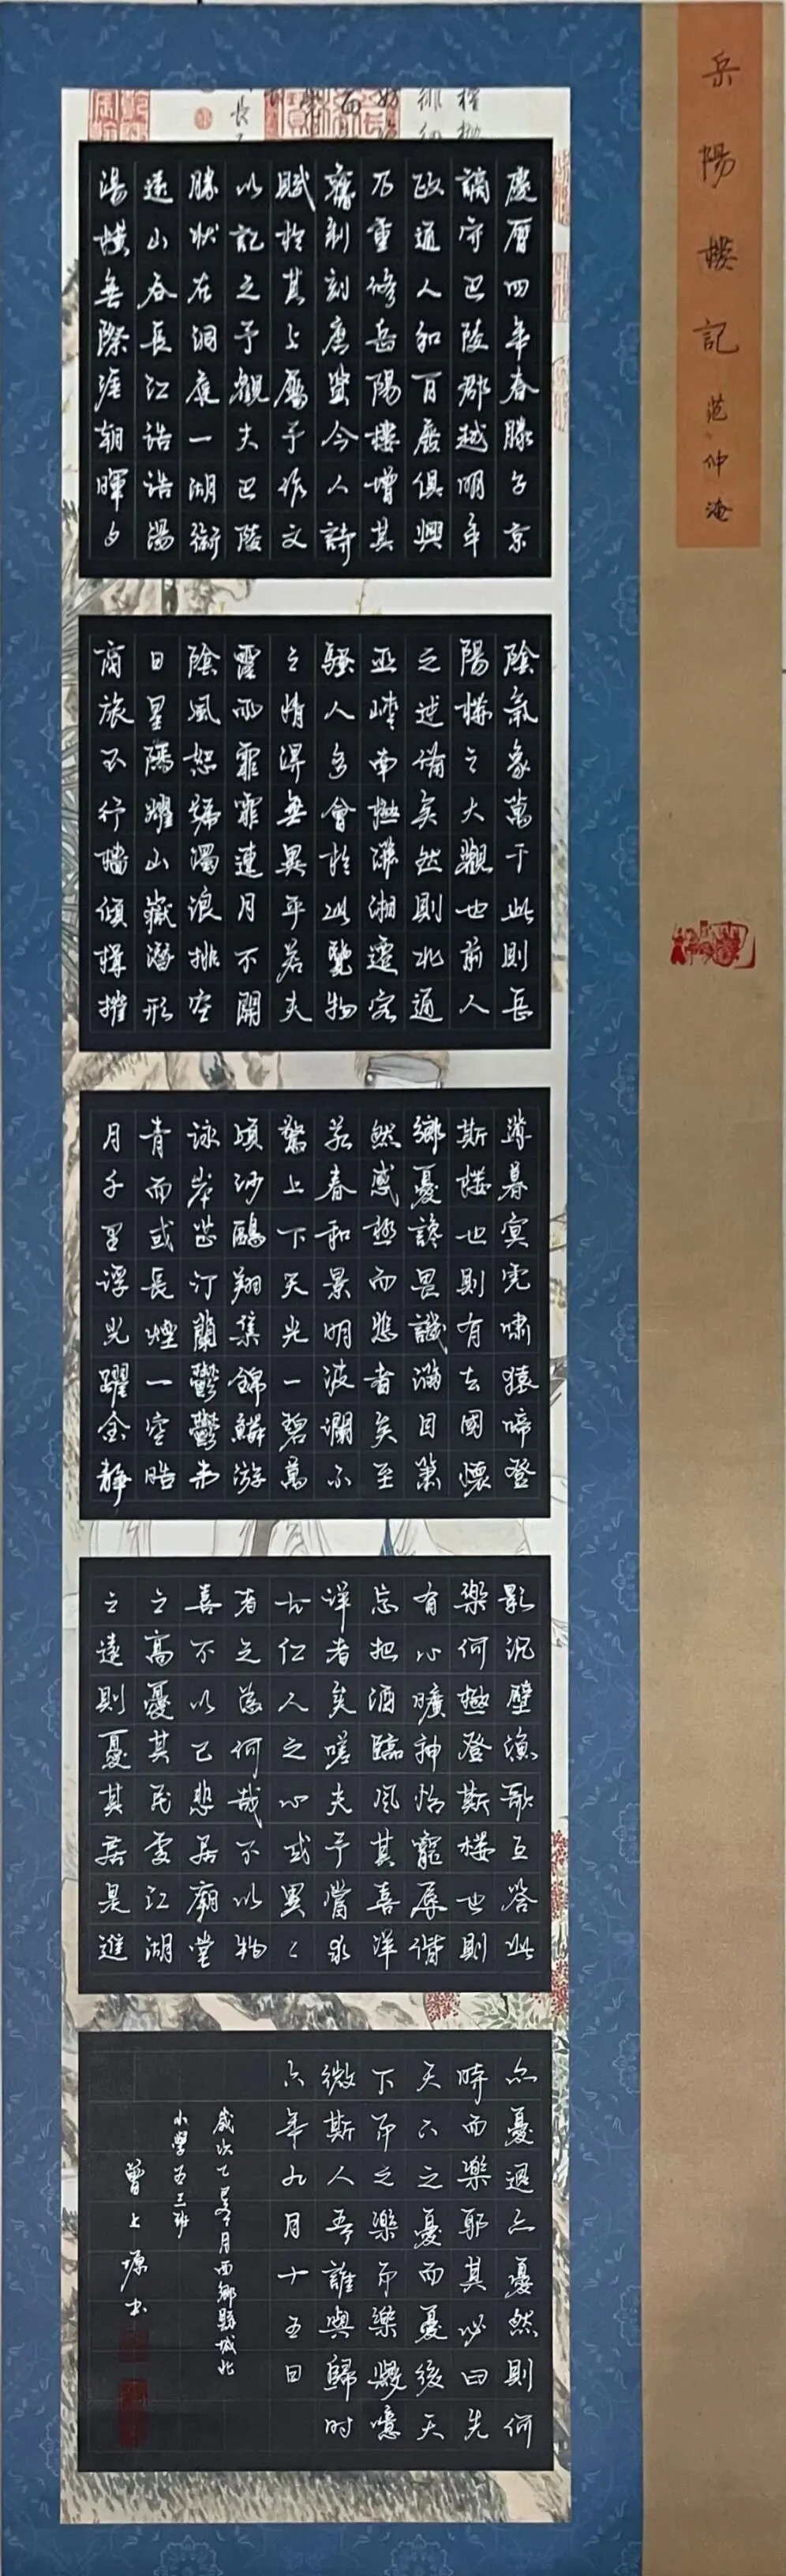 岳陽樓記 范仲淹
慶曆四年春滕子京
謫守巴陵郡越明年
政通人和百廢俱興
乃重修岳陽樓增其
舊制刻唐賢今人詩
賦於其上屬予作文
以記之予觀夫巴陵
勝狀在洞庭一湖銜
遠山吞長江浩浩湯
湯橫無際涯朝暉夕
陰氣象萬千此則岳
陽樓之大觀也前人
之述備矣然則北通
巫峽南極瀟湘遷客
騷人多會於此覽物
之情得無異乎若夫
霪雨霏霏連月不開
陰風怒號濁浪排空
日星隱耀山嶽潛形
商旅不行檣傾楫摧
薄暮冥虎嘯猿啼登
斯樓也則有去國懷
鄉憂讒畏譏滿目蕭
然感極而悲者矣至
若春和景明波瀾不
驚上下天光一碧萬
頃沙鷗翔集錦鱗游
泳岸芷汀蘭鬱鬱青
青而或長煙一空皓
月千里浮光躍金靜
影沉璧漁歌互答此
樂何極登斯樓也則
有心曠神怡寵辱偕
忘把酒臨風其喜洋
洋者矣嗟夫予嘗求
古仁人之心或異二
者之為何哉不以物
喜不以己悲居廟堂
之高憂其民處江湖
之遠則憂其君是進
亦憂退亦憂然則何
時而樂耶其必曰先
天下之憂而憂後天
下而之樂而樂歟噫
微斯人吾誰與歸时
六年九月十五日
歲次乙巳月西鄉縣城北
小學五三班
曾上塬书